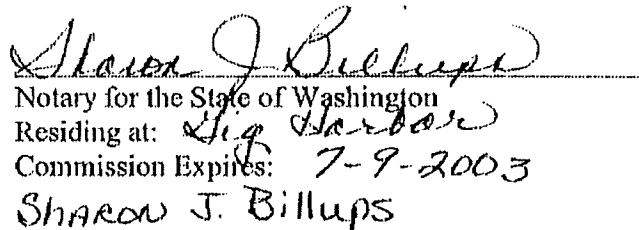 Sharon J Billups
Notary for the State of Washington
Residing at: Gig Harbor
Commission Expires: 7-9-2003
Sharon J. Billups